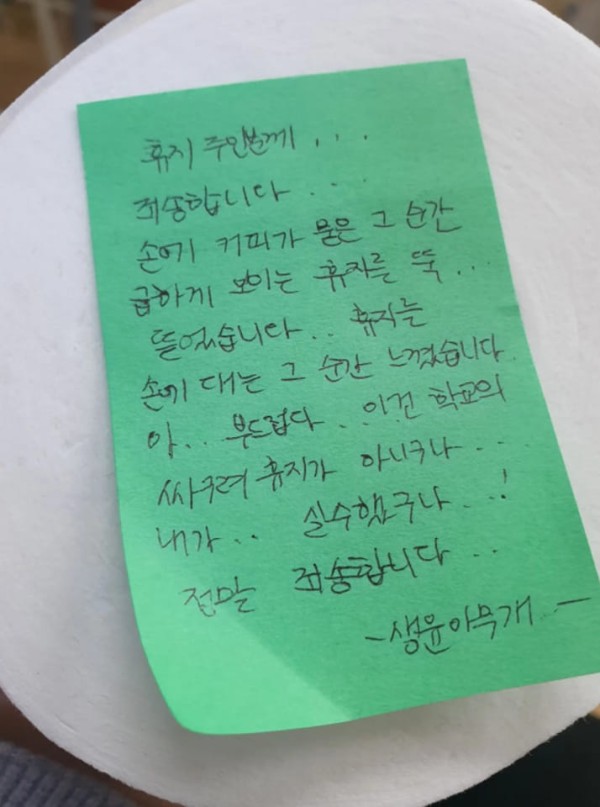 휴지 주인분께 ...
죄송합니다 ...
손에 커피가 묻은 그 순간
급하게 보이는 휴지를 뚝...
뜯었습니다.. 휴지를
손에 대는 그 순간 느꼈습니다.
아... 부드럽다.. 이건 학교의
싸구려 휴지가 아니구나...
내가.. 실수했구나..!
정말 죄송합니다..
-생윤아무개-